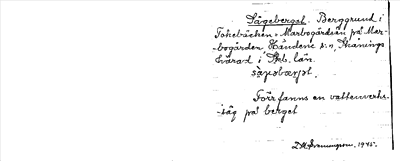 Sågeberget. Berggrund i
Tokebäcken o. Marbogärdsån på Mar-
-bogården Händene s:n, Skånings
härad i Skb. län.
sàɡəbærjət.
Förr fanns en vattenverks-
-såg på berget
1945.